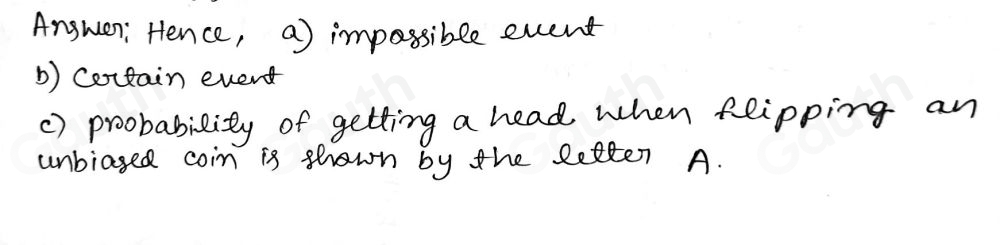 Answer; Hence, a) impossible event
b) Certain event
c) probability of getting a head when flipping an
unbiased coin is shown by the letter A.